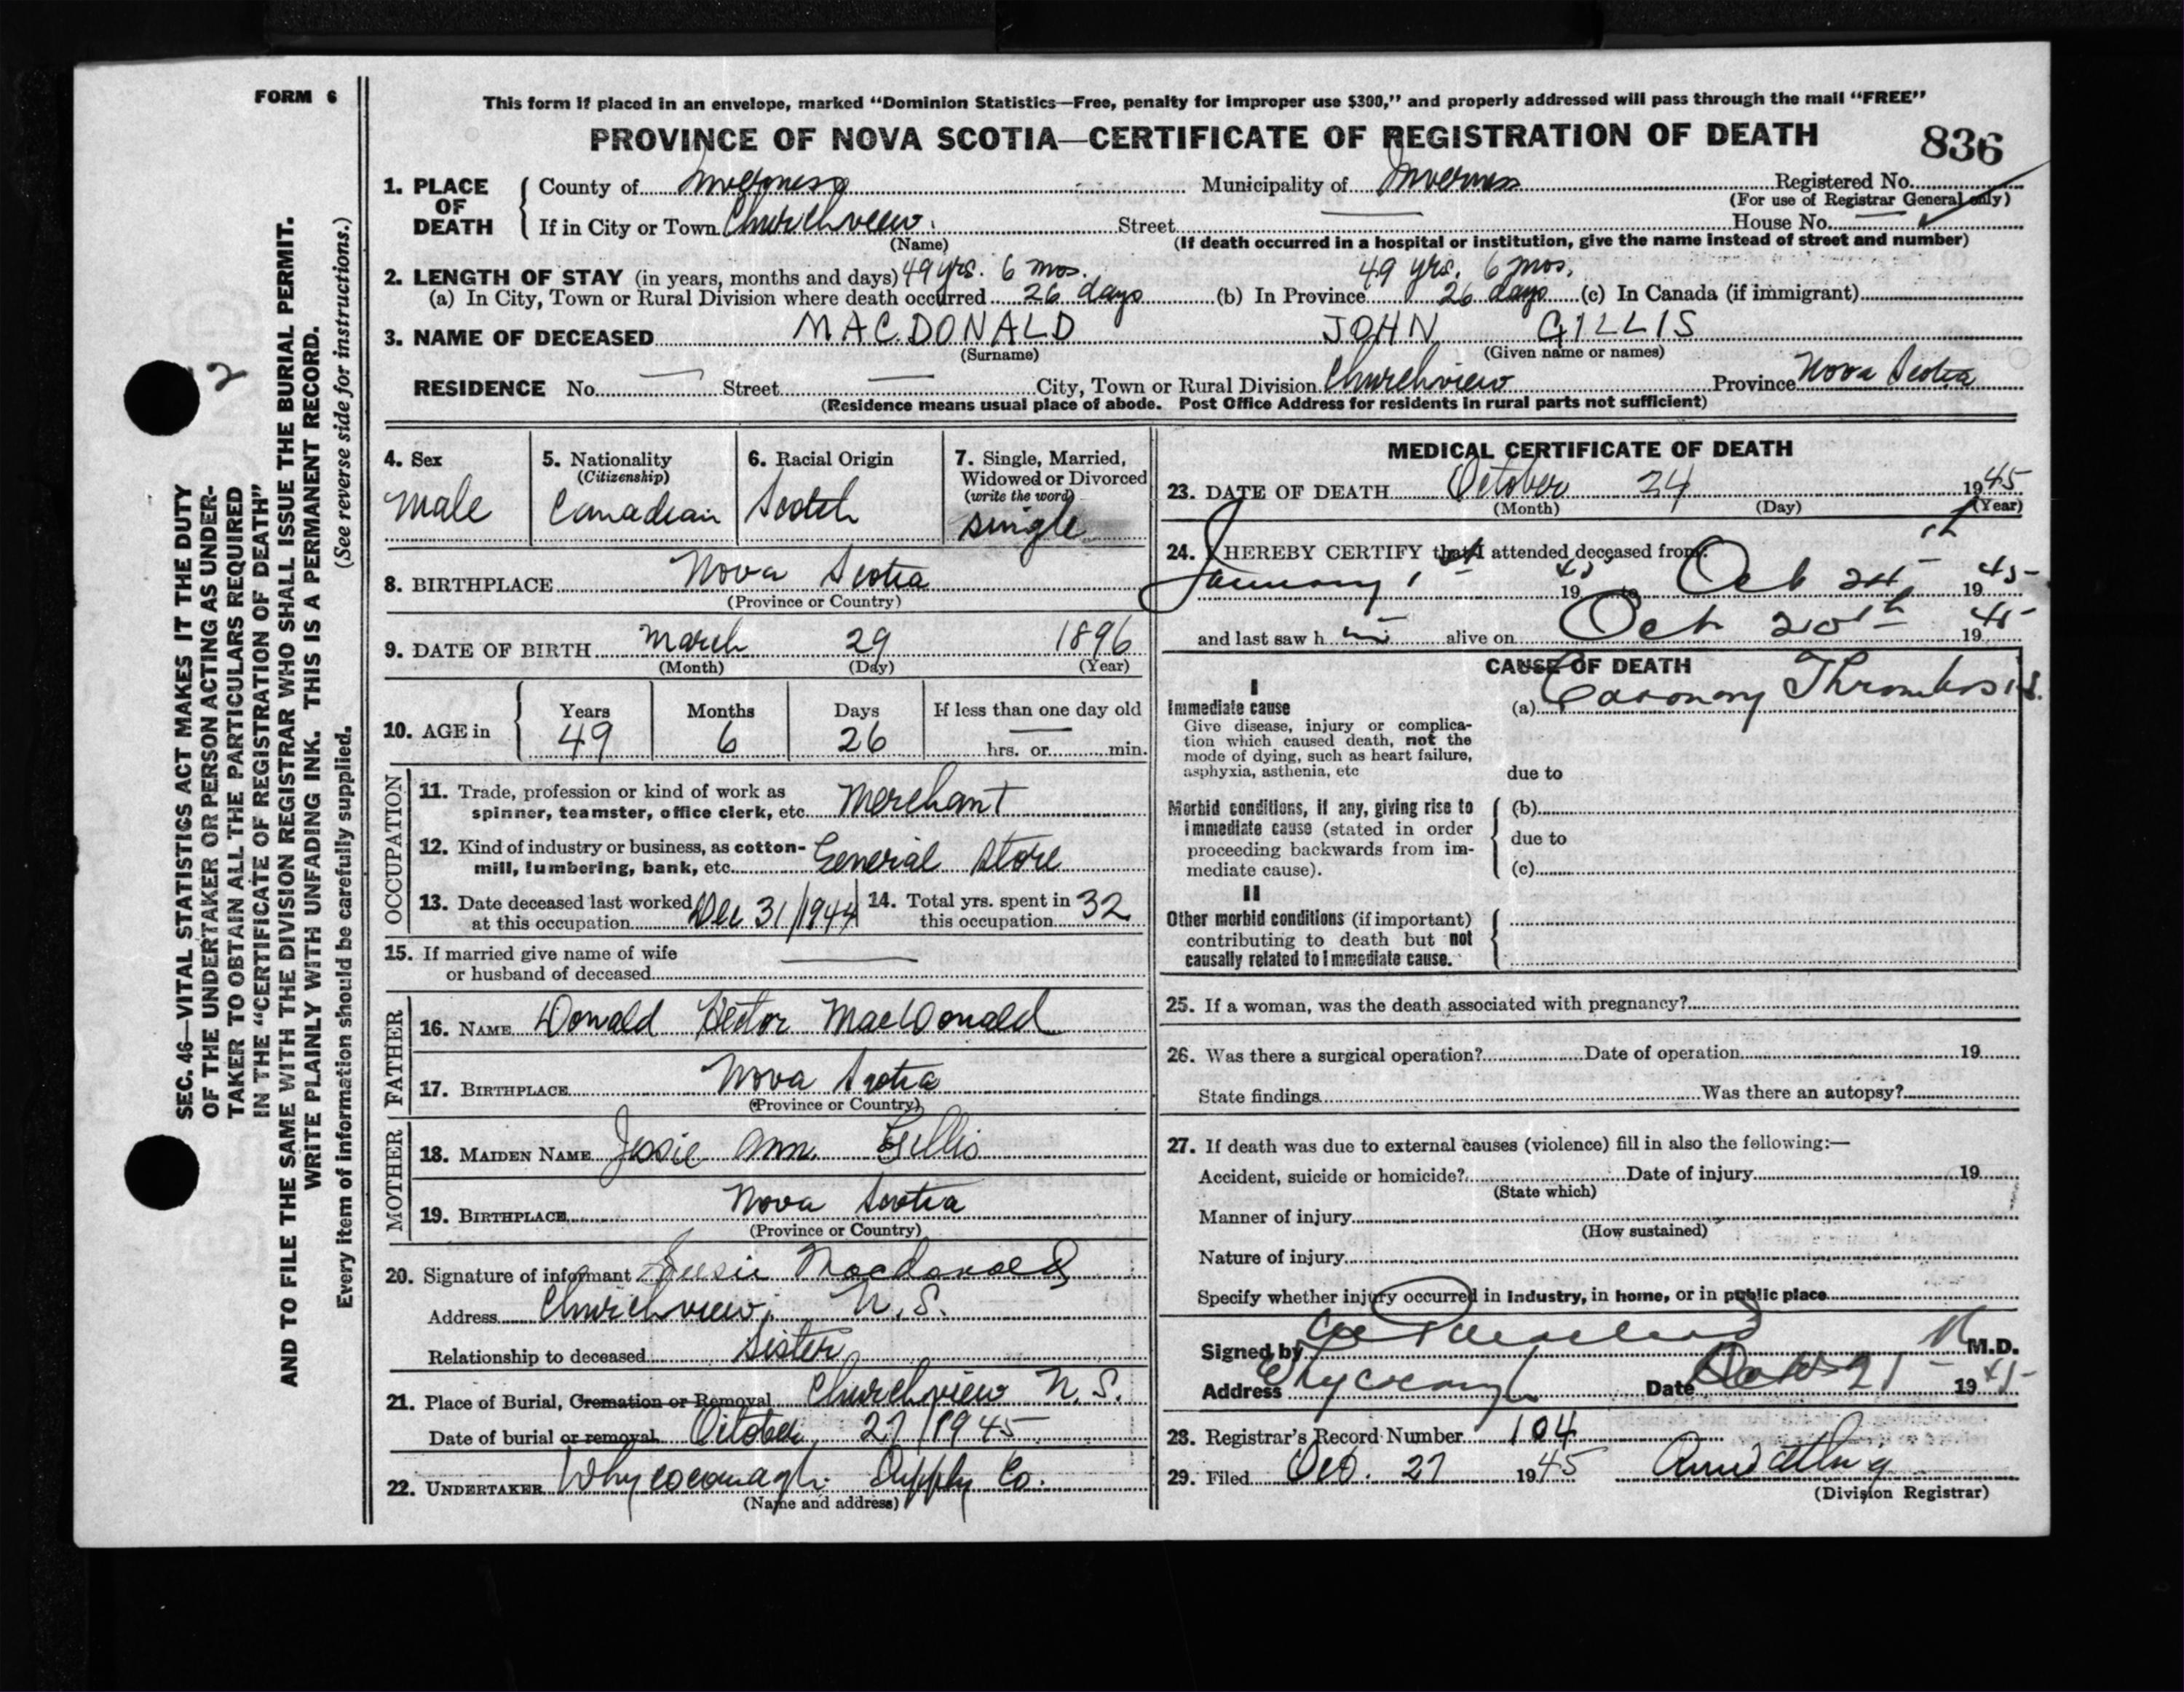 FORM 6
This form if placed in an envelope, marked “Dominion Statistics—Free, penalty for improper use $300,” and properly addressed will pass through the mail “FREE”
PROVINCE OF NOVA SCOTIA—CERTIFICATE OF REGISTRATION OF DEATH
836
1. PLACE OF DEATH County of Inverness Municipality of Inverness Registered No.
(For use of Registrar General only)
If in City or Town Churchview. Street House No.
(Name) (If death occurred in a hospital or institution, give the name instead of street and number)
2. LENGTH OF STAY (in years, months and days) 49 yrs. 6 mos. 49 yrs. 6 mos.
(a) In City, Town or Rural Division where death occurred 26 days (b) In Province 26 days (c) In Canada (if immigrant)
3. NAME OF DECEASED MACDONALD JOHN GILLIS
(Surname) (Given name or names)
RESIDENCE No. — Street — City, Town or Rural Division Churchview Province Nova Scotia
(Residence means usual place of abode. Post Office Address for residents in rural parts not sufficient)
4. Sex
male
5. Nationality
(Citizenship)
Canadian
6. Racial Origin
Scotch
7. Single, Married,
Widowed or Divorced
(write the word)
single
8. BIRTHPLACE Nova Scotia
(Province or Country)
9. DATE OF BIRTH March 29 1896
(Month) (Day) (Year)
10. AGE in
Years Months Days If less than one day old
49 6 26 — hrs. or min.
OCCUPATION
11. Trade, profession or kind of work as
spinner, teamster, office clerk, etc. Merchant
12. Kind of industry or business, as cotton-
mill, lumbering, bank, etc. General Store
13. Date deceased last worked
at this occupation Dec 31/1944
14. Total yrs. spent in
this occupation 32
15. If married give name of wife
or husband of deceased —
FATHER
16. NAME Donald Hector MacDonald
17. BIRTHPLACE Nova Scotia
(Province or Country)
MOTHER
18. MAIDEN NAME Jessie Ann Gillis
19. BIRTHPLACE Nova Scotia
(Province or Country)
20. Signature of informant MacDonald
Address Churchview, N.S.
Relationship to deceased Sister
21. Place of Burial, Cremation or Removal Churchview N.S.
Date of burial or removal October 27/1945
22. UNDERTAKER Whycocomagh Supply Co.
(Name and address)
MEDICAL CERTIFICATE OF DEATH
23. DATE OF DEATH October 24 1945
(Month) (Day) (Year)
24. I HEREBY CERTIFY that I attended deceased from:
January 1st 1945 to Oct 24th 1945
and last saw him alive on Oct 20th 1945
CAUSE OF DEATH
I
Immediate cause
Give disease, injury or complica-
tion which caused death, not the
mode of dying, such as heart failure,
asphyxia, asthenia, etc
(a) Coronary Thrombosis.
due to
Morbid conditions, if any, giving rise to
immediate cause (stated in order
proceeding backwards from im-
mediate cause).
(b)
due to
(c)
II
Other morbid conditions (if important)
contributing to death but not
causally related to immediate cause.
25. If a woman, was the death associated with pregnancy?
26. Was there a surgical operation? Date of operation 19
State findings Was there an autopsy?
27. If death was due to external causes (violence) fill in also the following:—
Accident, suicide or homicide? Date of injury 19
(State which)
Manner of injury
(How sustained)
Nature of injury
Specify whether injury occurred in industry, in home, or in public place
Signed by M.D.
Address Whycocomagh Date 19
28. Registrar's Record Number 104
29. Filed Oct. 27 1945
(Division Registrar)
2
SEC. 46—VITAL STATISTICS ACT MAKES IT THE DUTY
OF THE UNDERTAKER OR PERSON ACTING AS UNDER-
TAKER TO OBTAIN ALL THE PARTICULARS REQUIRED
IN THE “CERTIFICATE OF REGISTRATION OF DEATH”
AND TO FILE THE SAME WITH THE DIVISION REGISTRAR WHO SHALL ISSUE THE BURIAL PERMIT.
WRITE PLAINLY WITH UNFADING INK. THIS IS A PERMANENT RECORD.
Every item of information should be carefully supplied. (See reverse side for instructions.)